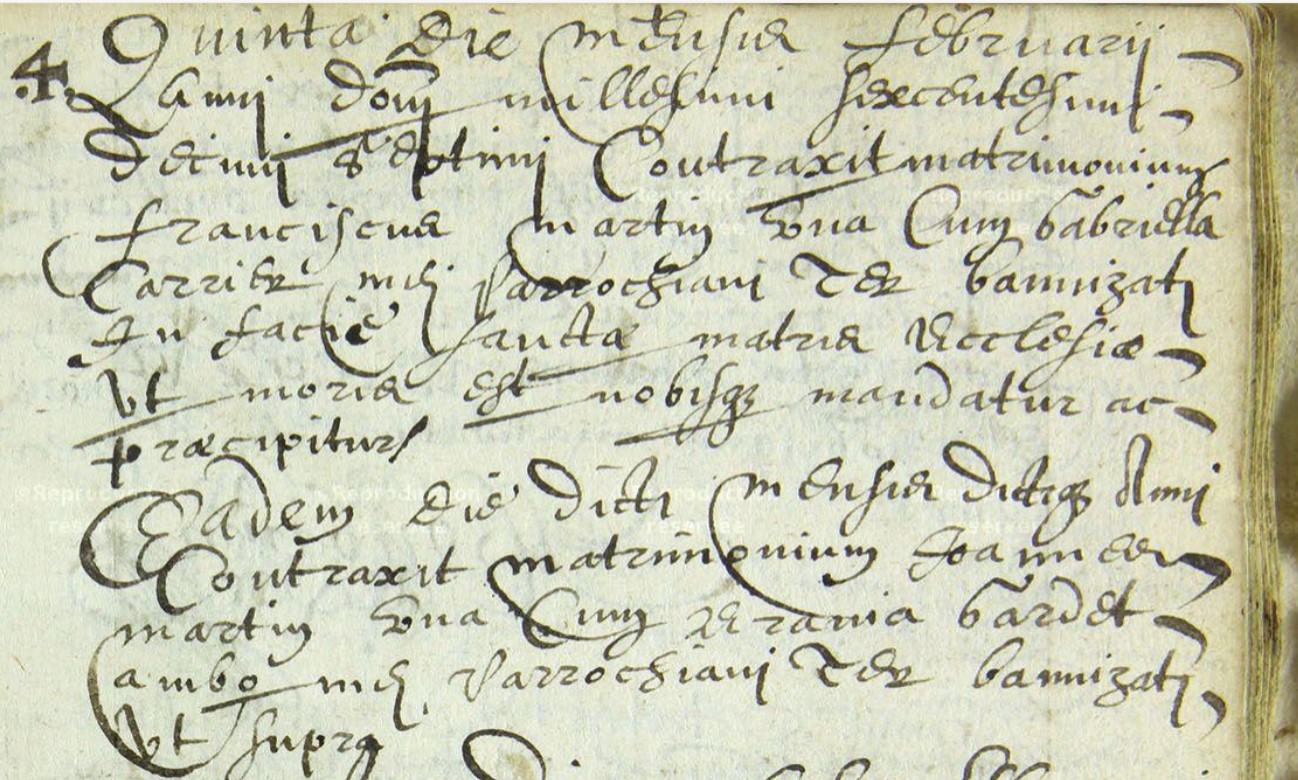 4. Quinta die mensis februarii
anni domi millesimi sexcentesimi
Decimi septimi Contraxit matrimonium
franciscus martin una Cum Gabriella
Carrier mei Parrochiani Ter bannizati
In facie sanctæ matris Ecclesiæ
Ut moris est nobisq; mandatur ac
præcipitur
Eadem die dicti mensis dictiq; Anni
Contraxit matrimonium Joannes
martin una Cum Gardet
ambo mei Parrochiani Ter bannizati
Ut supra